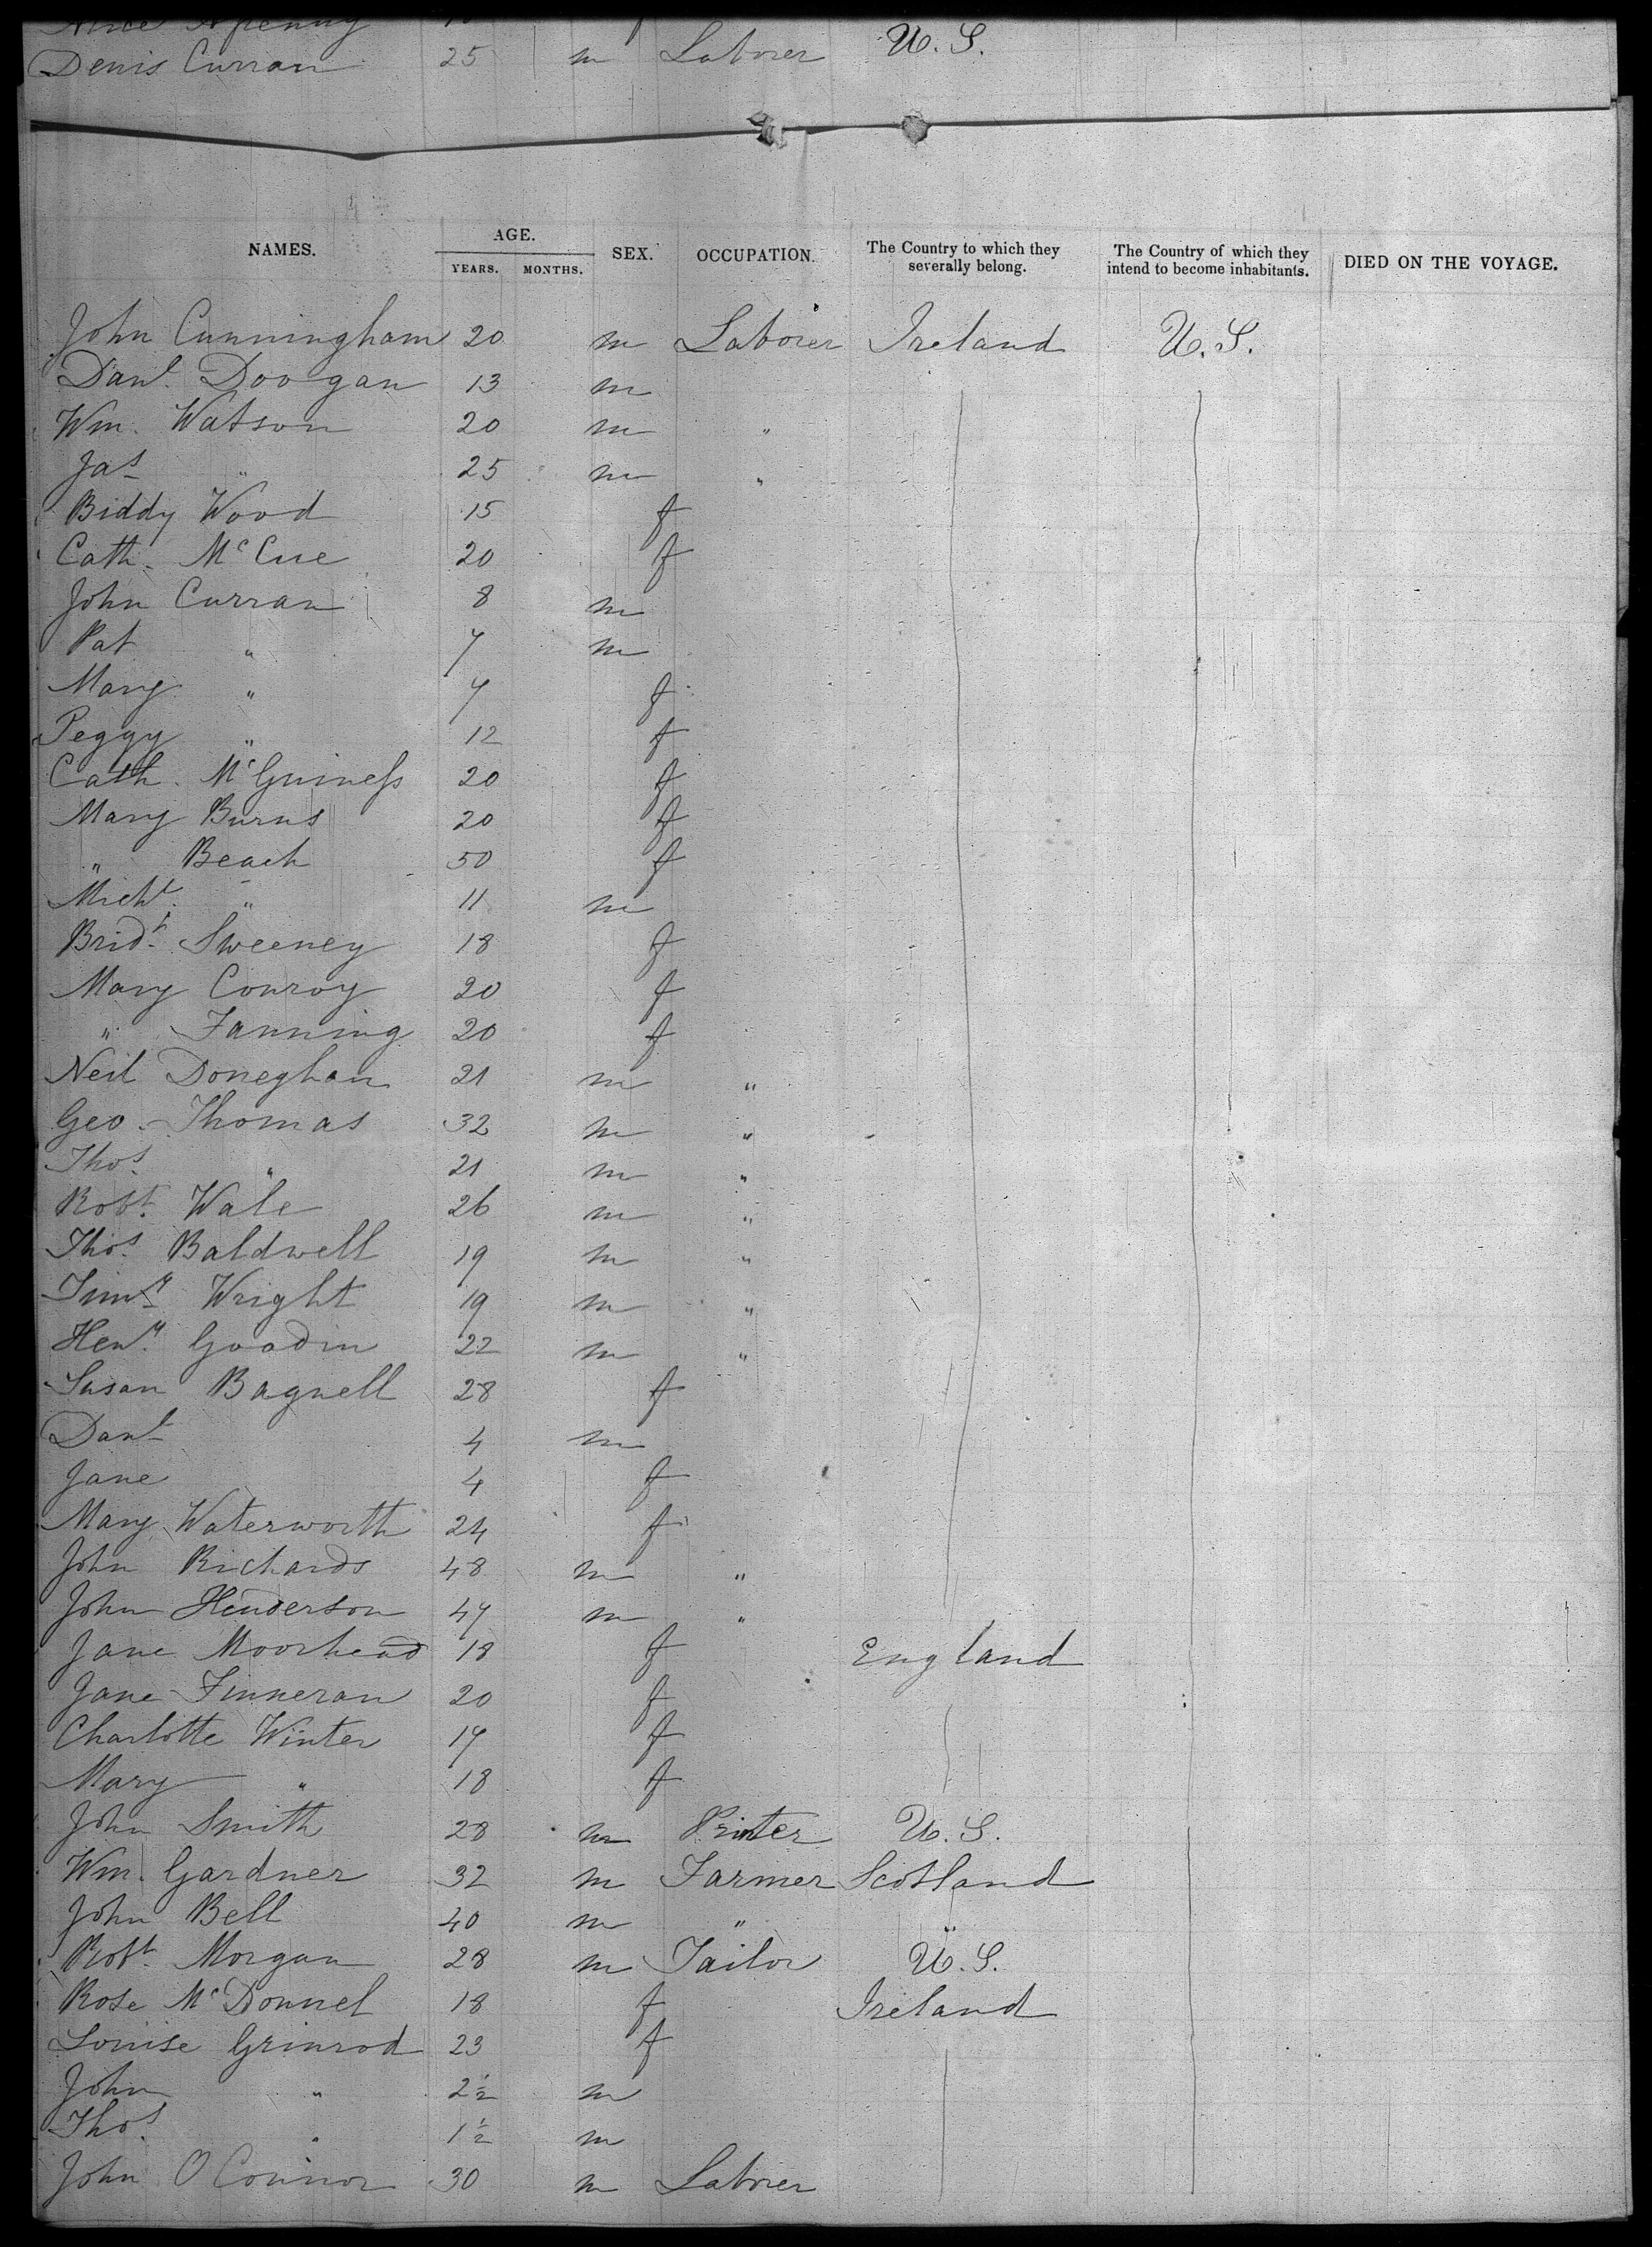 Denis Curran 25 m Laborer U.S.
NAMES. AGE. YEARS. MONTHS. SEX. OCCUPATION. The Country to which they severally belong. The Country of which they intend to become inhabitants. DIED ON THE VOYAGE.
John Cunningham 20 m Laborer Ireland U.S.
Danl. Doogan 13 m
Wm. Watson 20 m "
Jas " 25 m "
Biddy Wood 15 f
Cath. McCue 20 f
John Curran 8 m
Pat " 7 m
Mary " 7 f
Peggy " 12 f
Cath. McGuiness 20 f
Mary Burns 20 f
" Beach 50 f
Michl. " 11 m
Bridt. Sweeney 18 f
Mary Conroy 20 f
" Fanning 20 f
Neil Doneghan 21 m "
Geo. Thomas 32 m "
Thos. " 21 m "
Robt. Wale 26 m "
Thos. Baldwell 19 m "
Timy. Wright 19 m "
Heny. Goodin 22 m "
Susan Bagnell 28 f
Danl 4 m
Jane 4 f
Mary Waterworth 24 f
John Richards 48 m "
John Henderson 47 m "
Jane Moorhead 18 f England
Jane Finneran 20 f
Charlotte Winter 17 f
Mary " 18 f
John Smith 28 m Printer U.S.
Wm. Gardner 32 m Farmer Scotland
John Bell 40 m " "
Robt. Morgan 28 m Tailor U.S.
Rose McDonnel 18 f Ireland
Louise Grinrod 23 f
John " 2½ m
Thos. " 1½ m
John O Connor 30 m Laborer